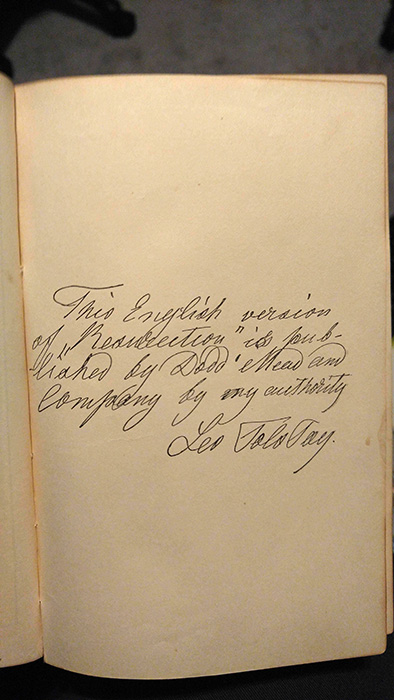 This English version
of „Resurrection" is pub-
lished by Dodd Mead and
Company by my authority
Leo Tolstoy.